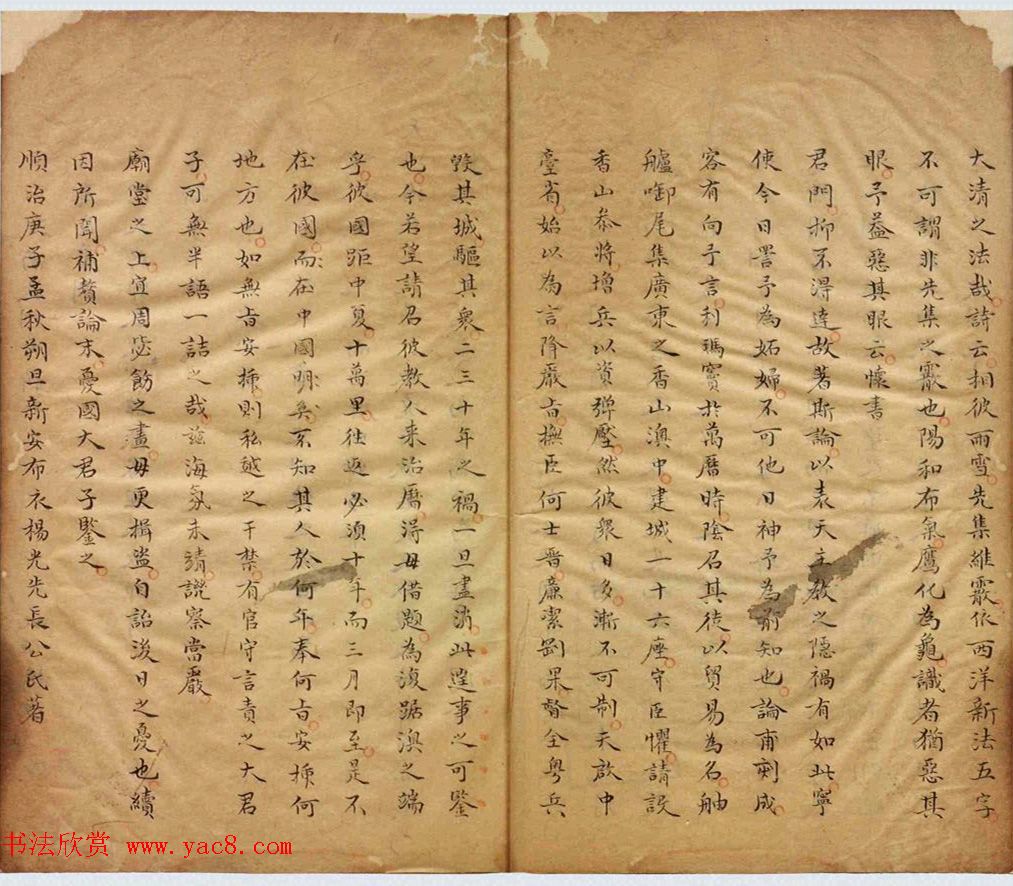 大清之法哉詩云相彼雨雪先集維霰依西洋新法五字
不可謂非先集之霰也陽和布氣鷹化為鳩識者猶惡其
眼予益惡其眼云懷書
君門抑不得達故著斯論以表天主教之隱禍有如此寧
使今日詈予為妬婦不可他日神予為前知也論甫剞成
客有向予言利瑪竇於萬曆時陰召其徒以貿易為名舳
艫啣尾集廣東之香山澳中建城一十六座守臣懼請設
香山叅將增兵以資彈壓然彼衆日多漸不可制天啟中
臺省始以為言降嚴旨撫臣何士晋廉潔剛果督全粵兵
毀其城驅其衆二三十年之禍一旦盡消此往事之可鑒
也今若望請召彼教人来治曆得毋借題為復踞澳之端
乎彼國距中夏十萬里往返必須十年而三月即至是不
在彼國而在中國明矣不知其人於何年奉何旨安揷何
地方也如無旨安揷則私越之干禁有官守言責之大君
子可無半語一詰之哉茲海氛未靖譏察當嚴
廟堂之上宜周宻飭之畫毋更揖盜自詒後日之憂也續
因所聞補贅論末憂國大君子鑒之
順治庚子孟秋朔旦新安布衣楊光先長公氏著
书法欣赏 www.yac8.com